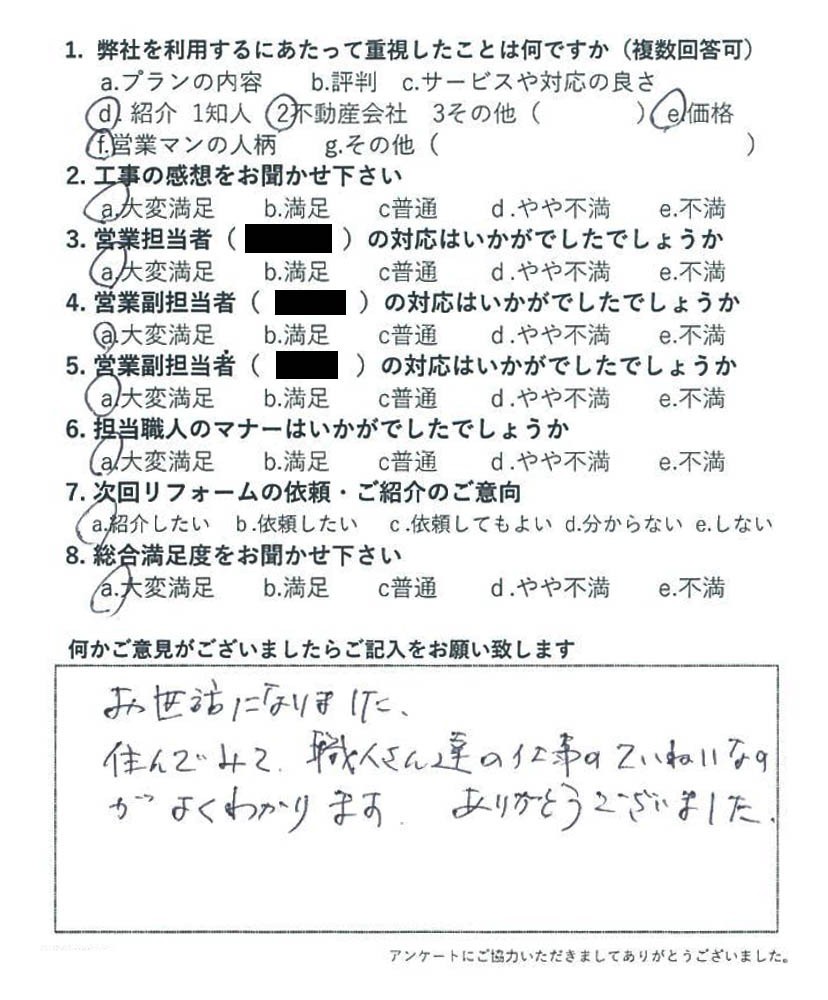 1. 弊社を利用するにあたって重視したことは何ですか（複数回答可）
a.プランの内容　b.評判　c.サービスや対応の良さ
d. 紹介　1知人　2不動産会社　3その他（　　　　）　e.価格
f.営業マンの人柄　g.その他（　　　　　　　　　　　　）
2. 工事の感想をお聞かせ下さい
a.大変満足　b.満足　c普通　d.やや不満　e.不満
3. 営業担当者（　　　）の対応はいかがでしたでしょうか
a.大変満足　b.満足　c普通　d.やや不満　e.不満
4. 営業副担当者（　　　）の対応はいかがでしたでしょうか
a.大変満足　b.満足　c普通　d.やや不満　e.不満
5. 営業副担当者（　　　）の対応はいかがでしたでしょうか
a.大変満足　b.満足　c普通　d.やや不満　e.不満
6. 担当職人のマナーはいかがでしたでしょうか
a.大変満足　b.満足　c普通　d.やや不満　e.不満
7. 次回リフォームの依頼・ご紹介のご意向
a.紹介したい　b.依頼したい　c.依頼してもよい　d.分からない　e.しない
8. 総合満足度をお聞かせ下さい
a.大変満足　b.満足　c普通　d.やや不満　e.不満
何かご意見がございましたらご記入をお願い致します
お世話になりました、
住んでみて、職人さん達の仕事のていねいなの
がよくわかります、ありがとうございました、
アンケートにご協力いただきましてありがとうございました。